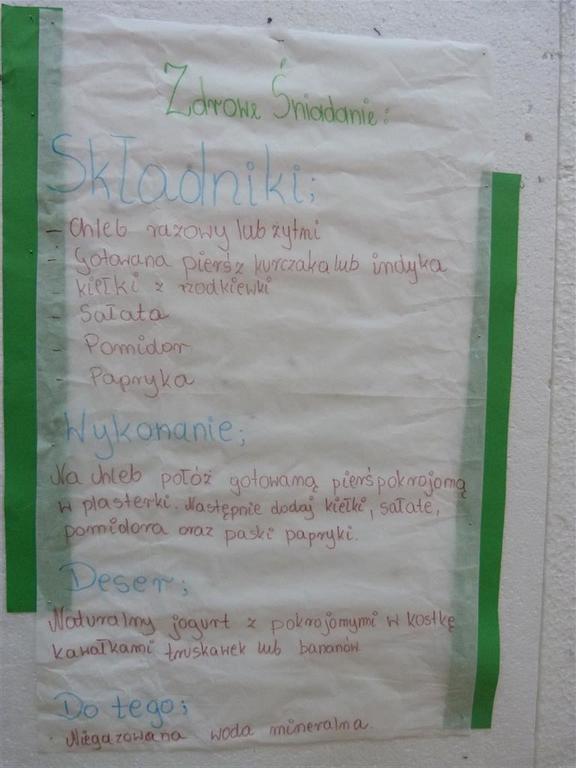 Zdrowe Śniadanie:
Składniki;
- Chleb razowy lub żytmi
- Gotowana pierś z kurczaka lub indyka
- kiełki z rzodkiewki
- Sałata
- Pomidor
- Papryka
Wykonanie;
Na chleb połóż gotowamą pierś pokrojomą
w plasterki. Następnie dodaj kiełki, sałate,
pomidora oraz paski papryki.
Deser;
Naturalmy jogurt z pokrojomymi w kostkę
kawałkami truskawek lub bananów.
Do tego;
- Niegazowana woda mineralna.